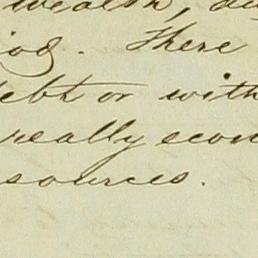 wealth,
iod. There
debt or with
really econ
sources.